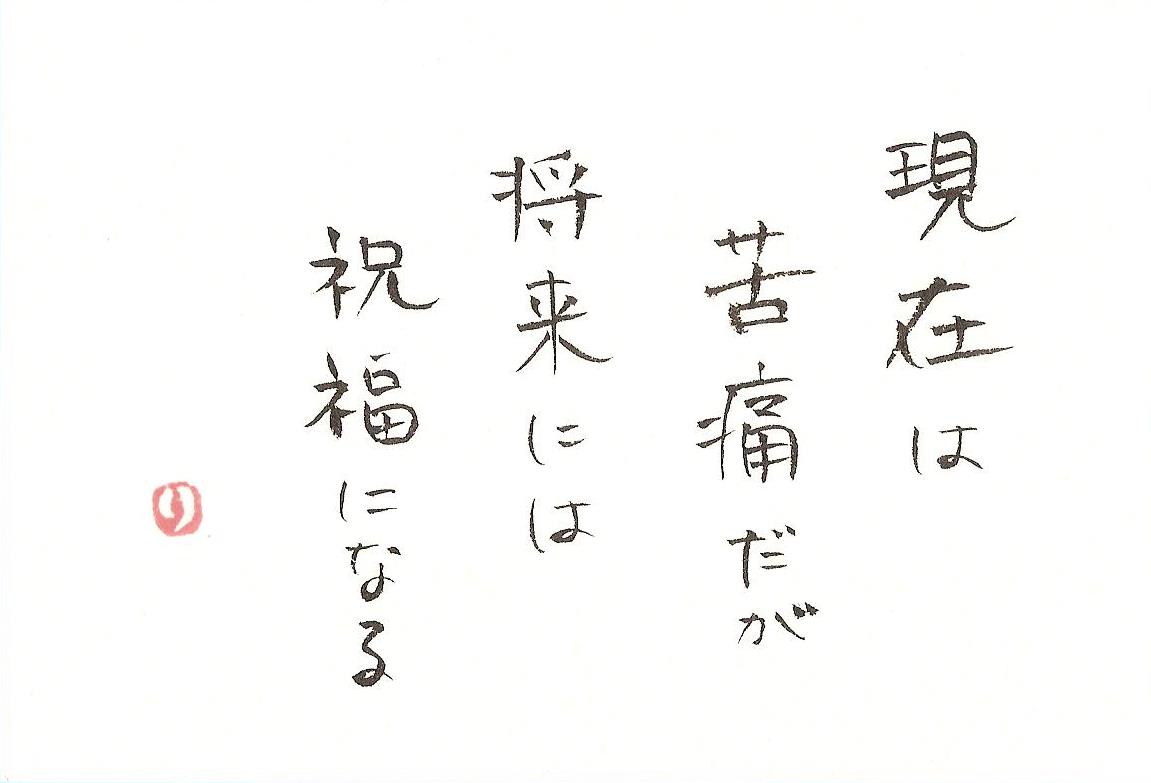 現在は
苦痛だが
将来には
祝福になる
り